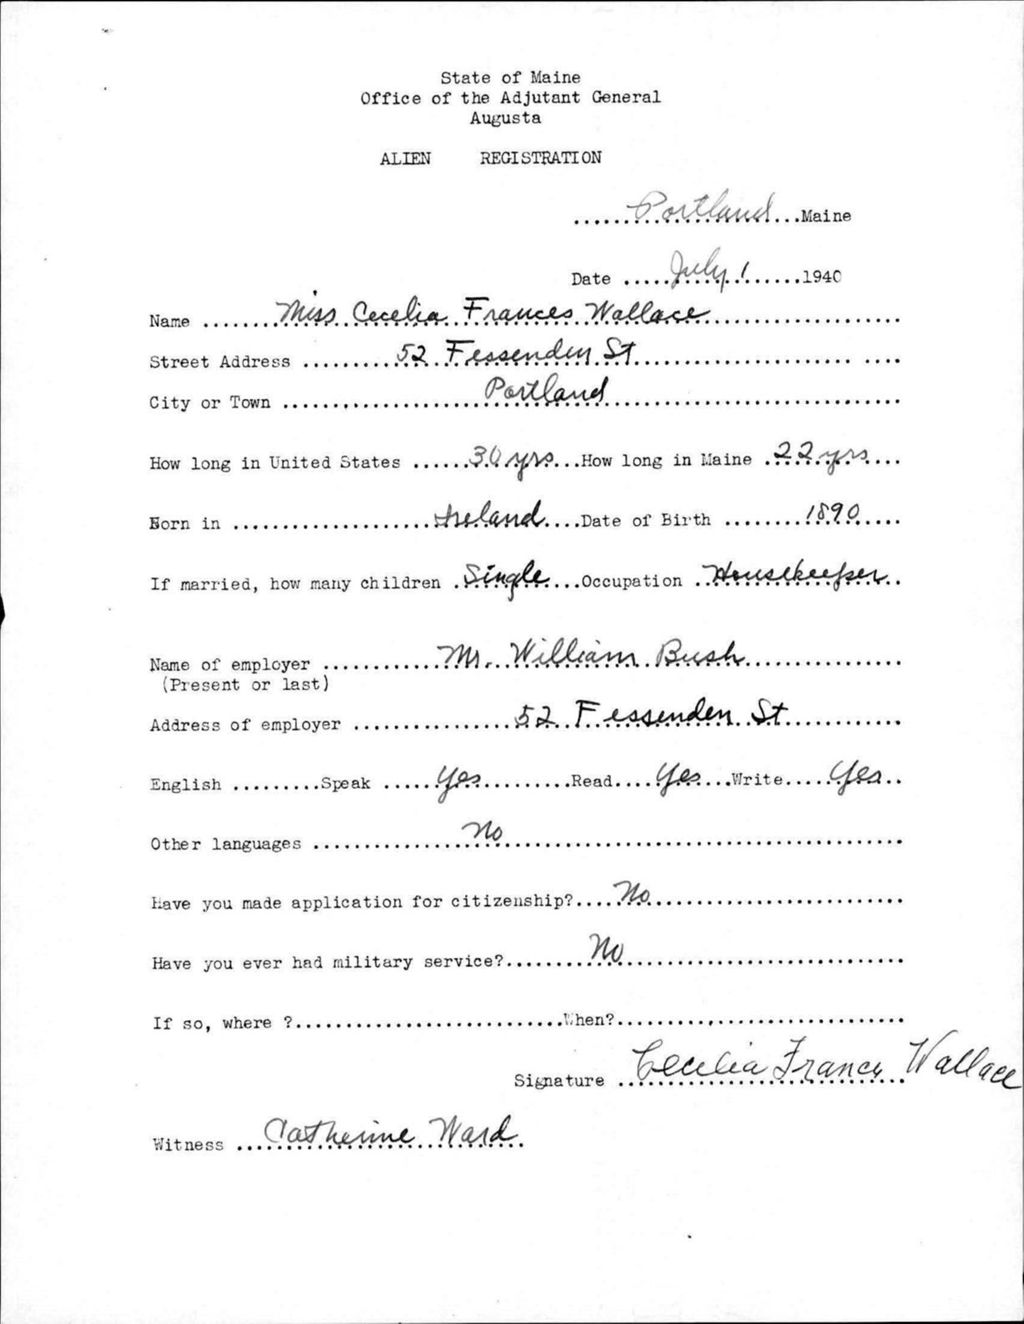 State of Maine
Office of the Adjutant General
Augusta
ALIEN REGISTRATION
......Portland...Maine
Date .....July 1......1940
Name ........Miss Cecelia Frances Wallace.......................
Street Address ..........52 Fessenden St.......................... ....
City or Town ........................Portland...................................
How long in United States ......30 yrs...How long in Maine .22 yrs....
Born in ....................Ireland....Date of Birth ........1890.....
If married, how many children .Single...Occupation .Housekeeper..
Name of employer ............Mr. William Bush...................
(Present or last)
Address of employer ................52 Fessenden St.............
English .........Speak .....Yes..........Read....Yes...Write.....Yes..
Other languages ................No................................................
Have you made application for citizenship?....No...............................
Have you ever had military service?........No..................................
If so, where ?...........................When?..............................
Signature ..Cecelia Frances Wallace
Witness ...Catherine Ward.